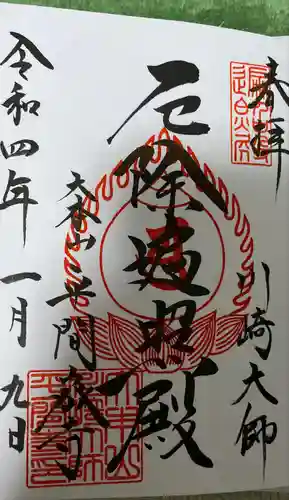 奉拝
川崎大師
厄除遍照殿
大本山平間寺
令和四年一月九日